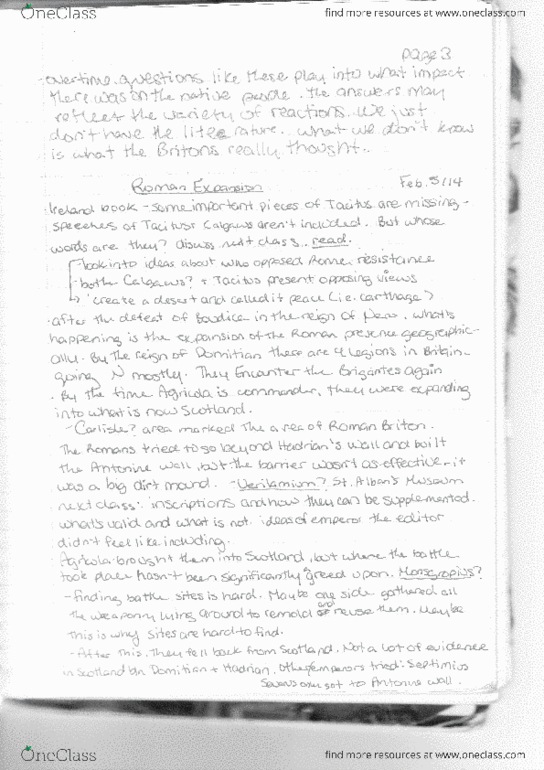 OneClass
find more resources at www.oneclass.com
page 3
-overtime, questions like these play into what impact
there was on the native people. The answers may
reflect the variety of reactions. We just
don't have the literature.. what we don't know
is what the Britons really thought..
Roman Expansion Feb. 5/14
Ireland book - some important pieces of Tacitus are missing -
speeches of Tacitus+ Calgaws aren't included. But whose
words are they? discuss next class.. read.
-look into ideas about who opposed Rome, resistance
-both Calgaws? + Tacitus present opposing views
"create a desert and called it peace (i.e. carthage)
· after the defeat of Boudica in the reign of Nero. what's
happening is the expansion of the Roman presence geographic-
ally. By the reign of Domitian there are 4 legions in Britain-
going N mostly. They Encounter the Brigantes again
. By the time Agricola is commander, they were expanding
into what is now Scotland.
- Carlisle? area marked the area of Roman Briton.
The Romans tried to go beyond Hadrian's wall and built
the Antonine wall, but the barrier wasn't as effective - it
was a big dirt mound. - Verilamium? St. Alban's Museum
next class: inscriptions and how they can be supplemented.
what's valid and what is not. ideas of emperor the editor
didn't feel like including.
Agricola brought them into Scotland, but where the battle
took place hasn't been significantly agreed upon. Monsgropius?
- finding battle sites is hard. Maybe one side gathered all
the weaponry lying around to remold and reuse them. Maybe
this is why sites are hard to find.
- After this, they fell back from Scotland. Not a lot of evidence
in Scotland btn Domitian + Hadrian. Other emperors tried: Septimius
Severus got to Antonine wall.
OneClass
find more resources at www.oneclass.com